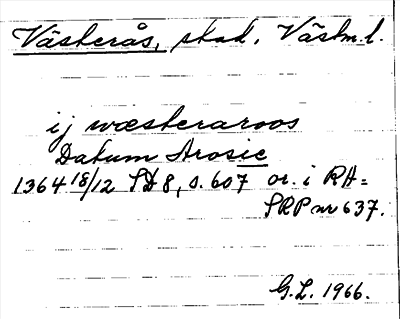 Västerås, stad. Västm.l.
ij wæsteraroos
Datum Arosie
1364 18/12 SD 8, s. 607 or. i RA =
SRP nr 637.
G.L. 1966.